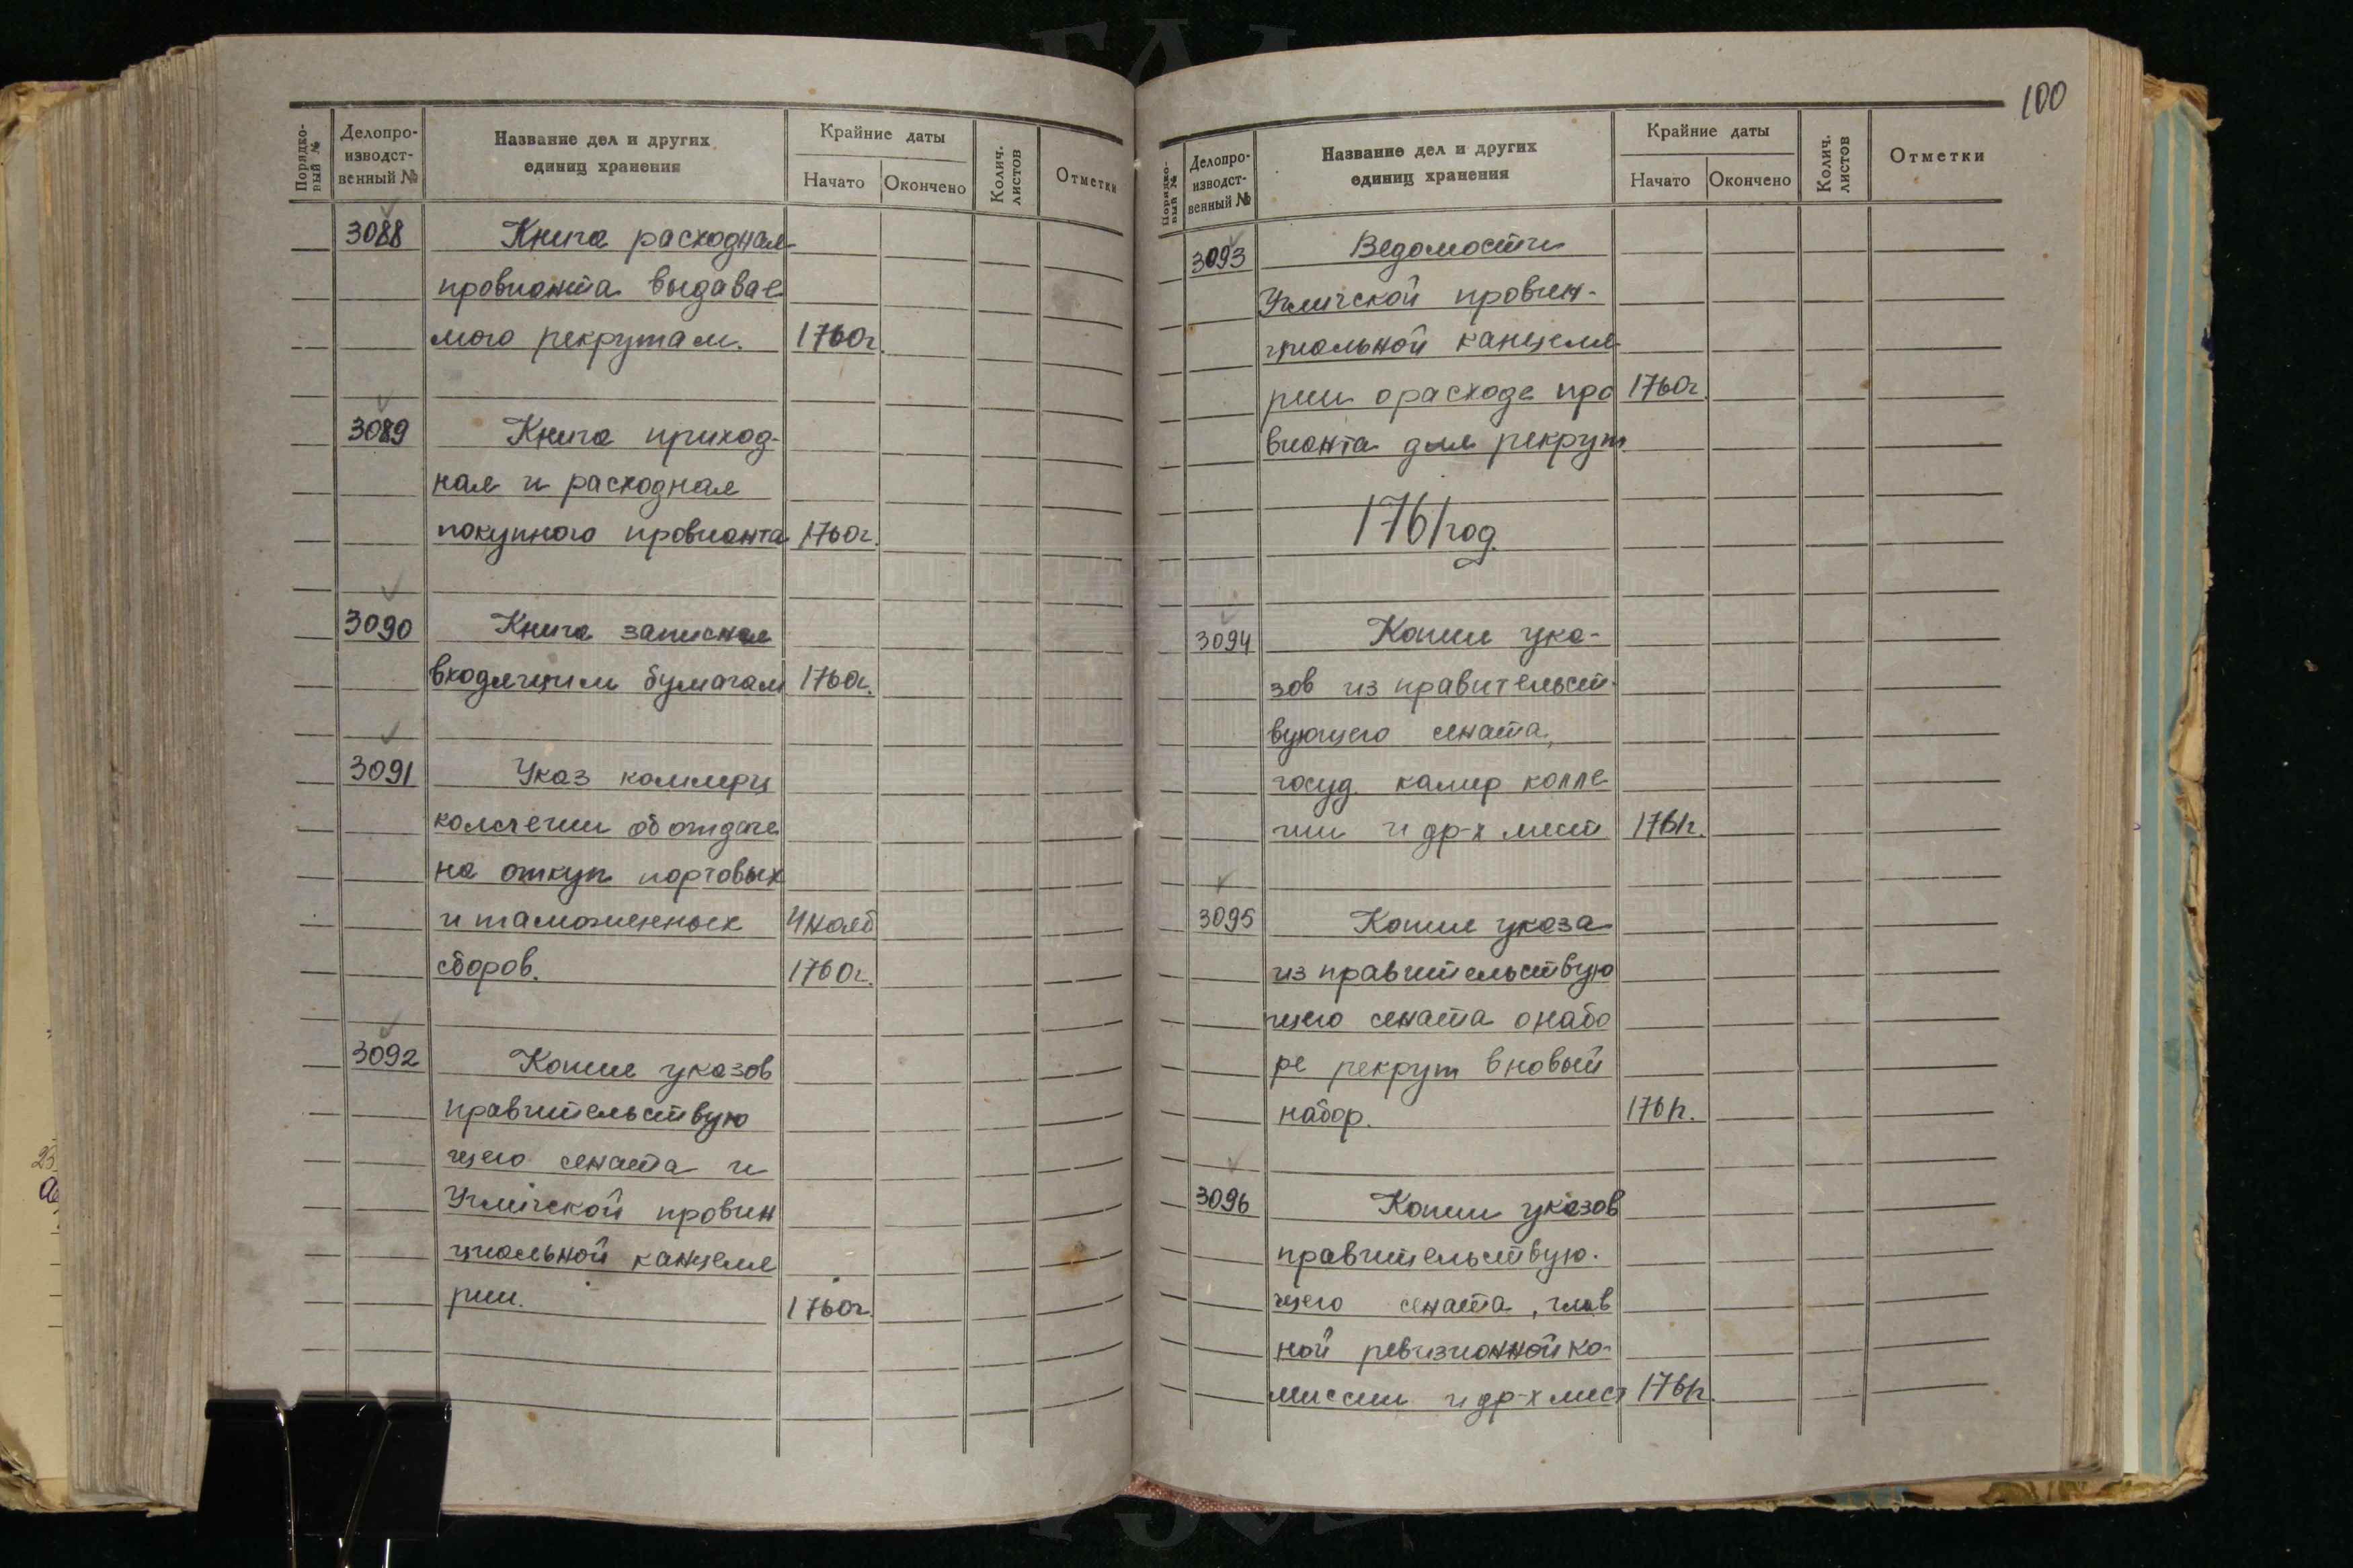 Порядко-
вый №
Делопро-
изводст-
венный №
Название дел и других
единиц хранения
Крайние даты
Начато
Окончено
Колич.
листов
Отметки
3088 Книга расходная
провианта выдавае
мого рекрутам. 1760г.
3089 Книга приход-
ная и расходная
покупного провианта 1760г.
3090 Книга записная
входящим бумагам 1760г.
3091 Указ коммерц
коллегии об отдаче
на откуп портовых
и таможенных 4 нояб
сборов. 1760г.
3092 Копии указов
правительствую
щего сената и
Угличской провин
циальной канцеля
рии. 1760г.
100
Порядко-
вый №
Делопро-
изводст-
венный №
Название дел и других
единиц хранения
Крайние даты
Начато
Окончено
Колич.
листов
Отметки
3093 Ведомости
Угличской провин-
циальной канцеля
рии о расходе про 1760г.
вианта для рекрут.
1761 год.
3094 Копии ука-
зов из правительст-
вующего сената,
госуд. камер колле
гии и др-х мест 1761г.
3095 Копии указа
из правительствую
щего сената о набо
ре рекрут в новый
набор. 1761г.
3096 Копии указов
правительствую-
щего сената, глав
ной ревизионной ко-
миссии и др-х мест 1761г.